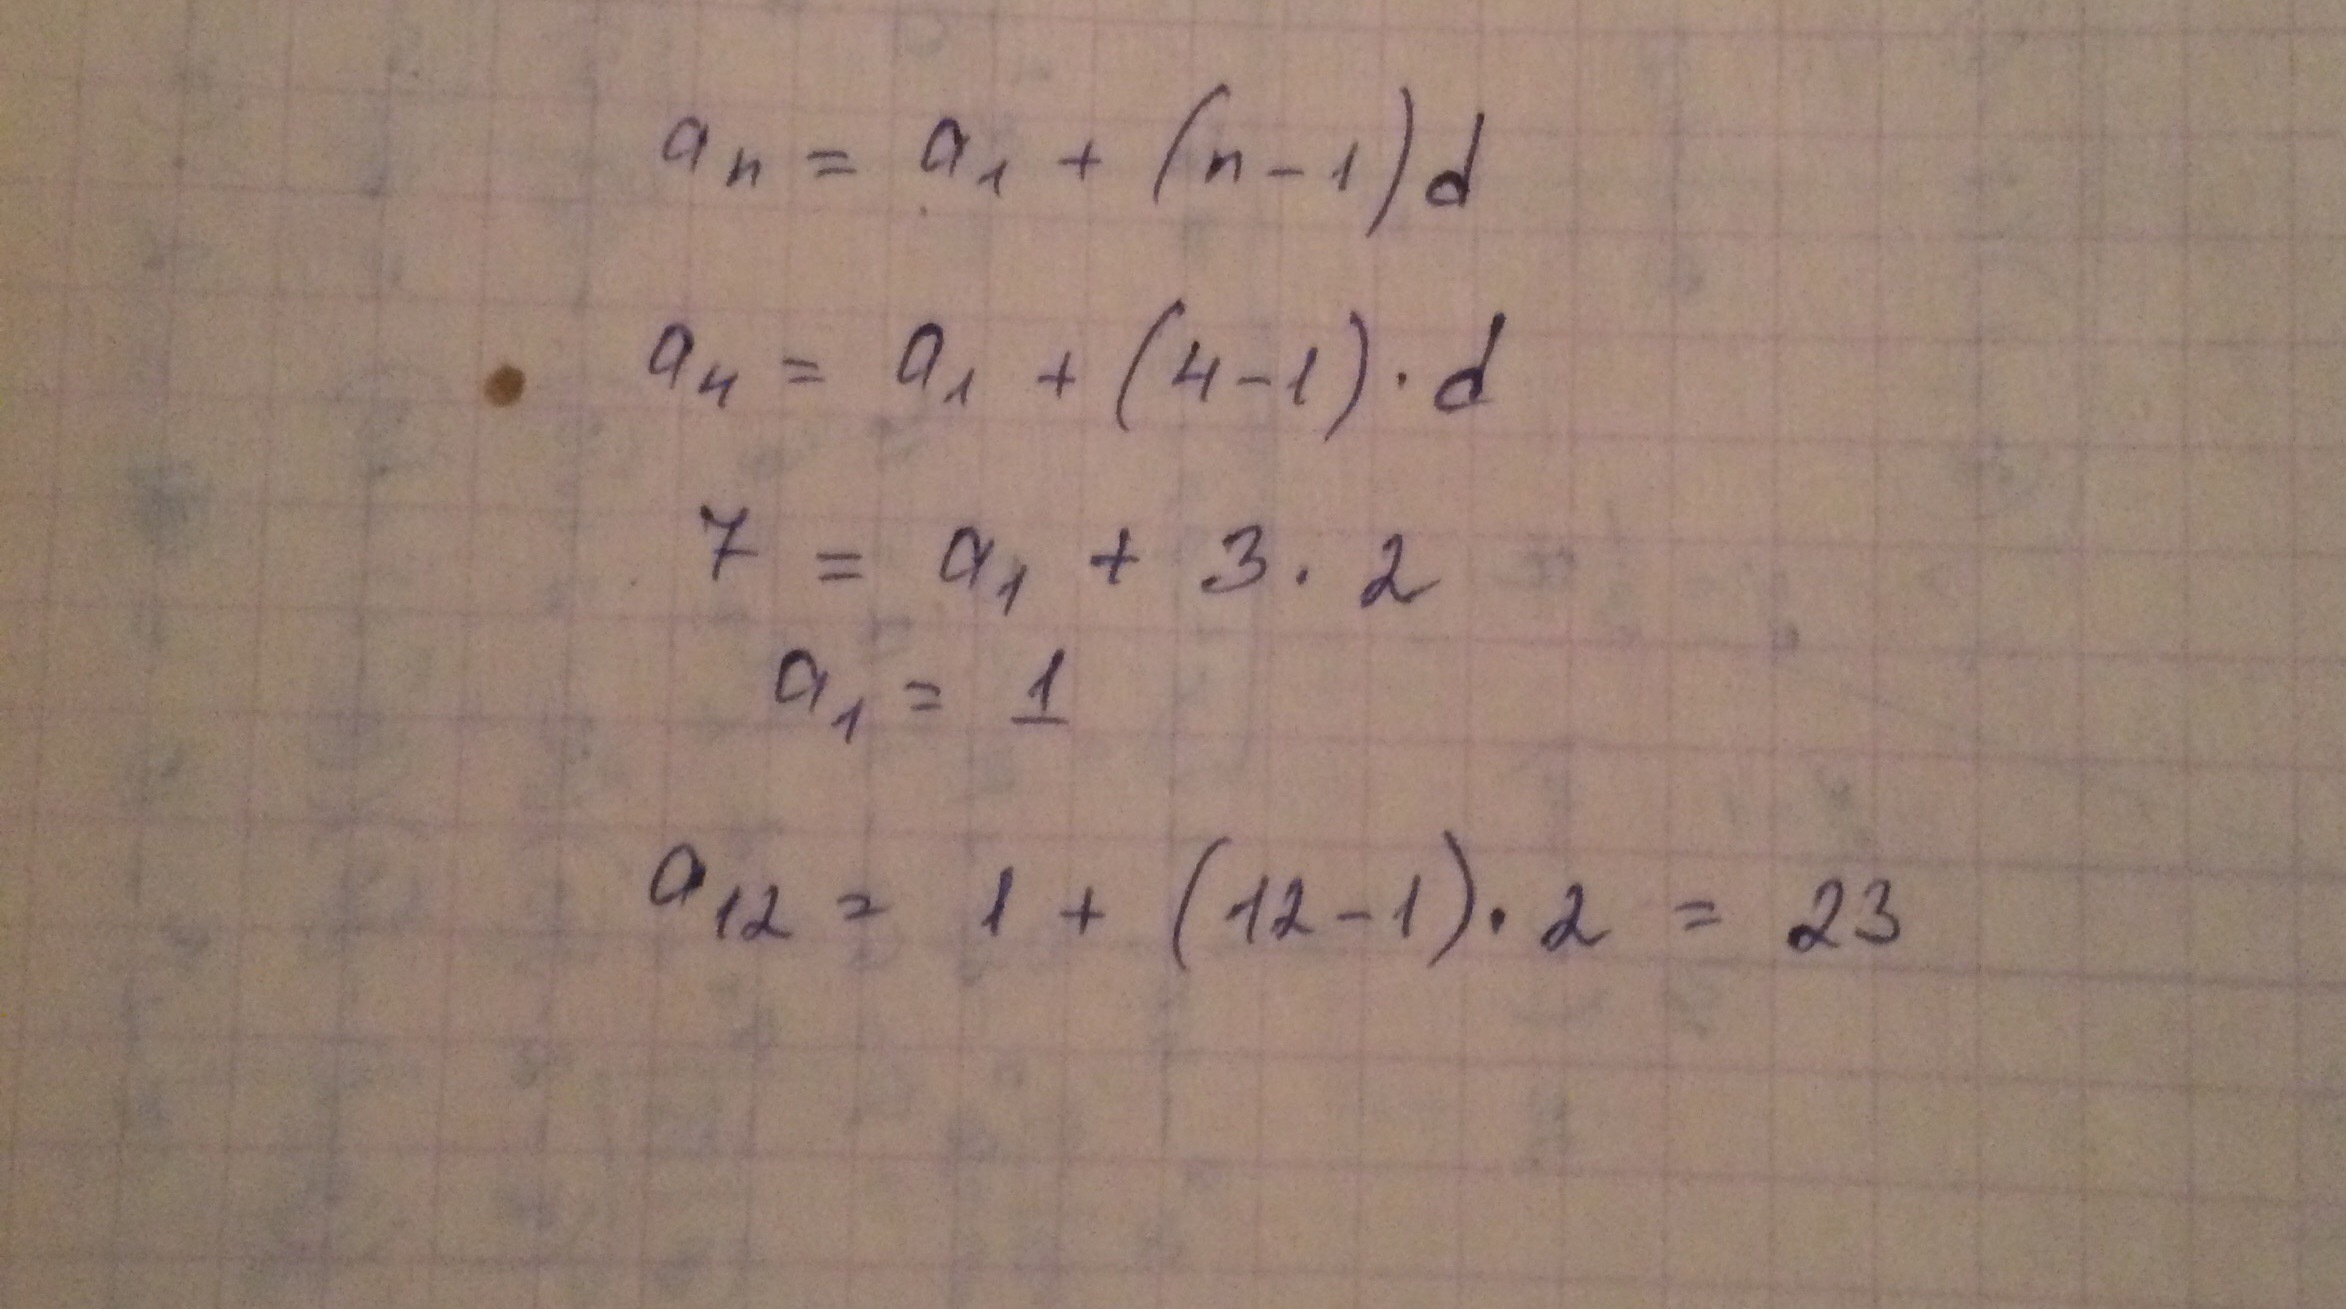 aₙ = a₁ + (n-1)d
a₄ = a₁ + (4-1)·d
7 = a₁ + 3·2
a₁ = 1
a₁₂ = 1 + (12-1)·2 = 23